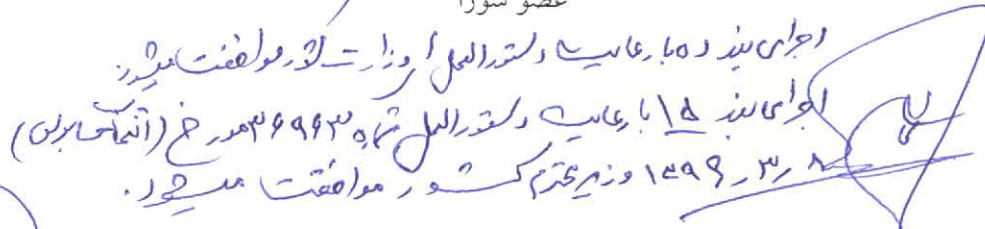 عضو شورا
اجرای بند ده با رعایت دستورالعمل وزارت کشور موافقت میشود.
اجرای بند ۱۵ با رعایت دستورالعمل شماره ۳۶۹۶۳ مورخ
۱۳۹۹٫۳٫۸ وزیر محترم کشور موافقت میشود.